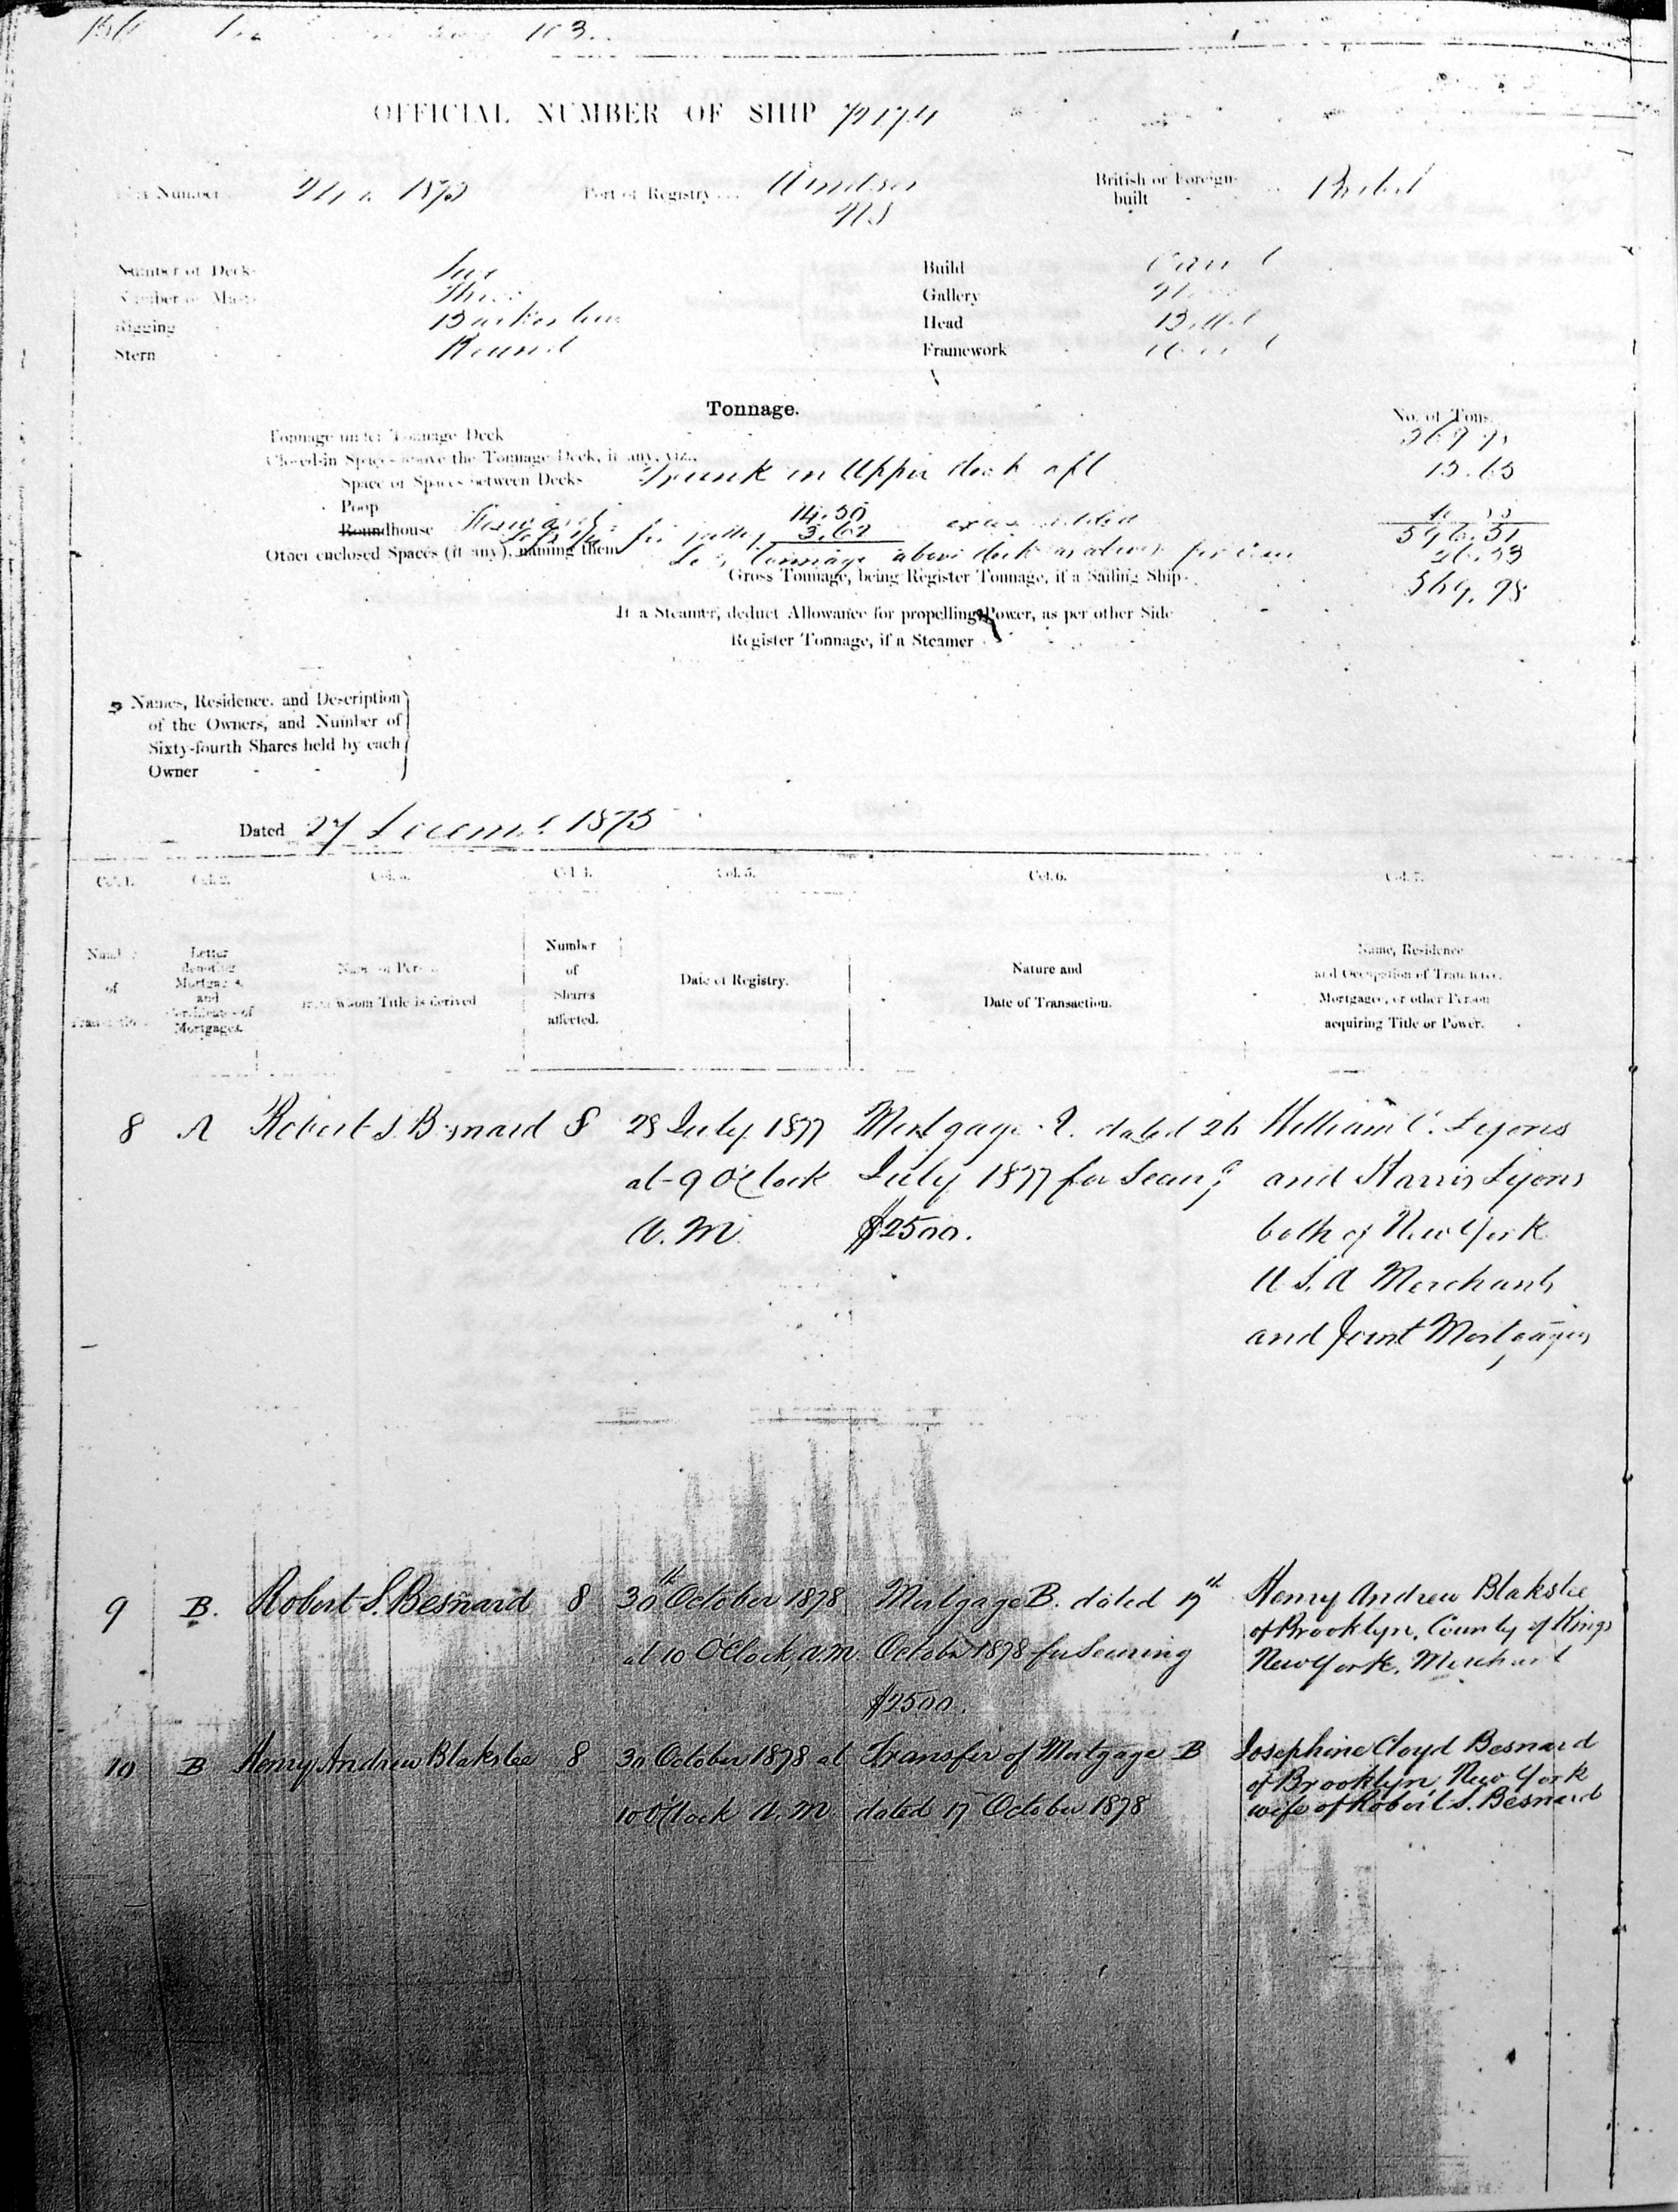 OFFICIAL NUMBER OF SHIP 72174
Number 1873 Port of Registry Windsor NS British or Foreign built British
Number of Decks
Number of Masts Three
Rigging Barkentine
Stern Round
Build Carvel
Gallery
Head Billet
Framework Wood
Tonnage.
No. of Tons.
Tonnage under Tonnage Deck
Closed-in Spaces above the Tonnage Deck, if any, viz.
Space or Spaces between Decks Trunk in Upper deck aft
Poop
Roundhouse 14.50
3.62
596.51
Other enclosed Spaces (if any), naming them Tonnage above deck as above 26.53
Gross Tonnage, being Register Tonnage, if a Sailing Ship 569.98
If a Steamer, deduct Allowance for propelling Power, as per other Side
Register Tonnage, if a Steamer
Names, Residence, and Description
of the Owners, and Number of
Sixty-fourth Shares held by each
Owner
Dated 27 1875
Col. 1. Col. 2. Col. 3. Col. 4. Col. 5. Col. 6. Col. 7.
Number
of
Transaction
Letter
denoting
Mortgages,
and
Certificates of
Mortgages.
Name of Person
from whom Title is derived
Number
of
Shares
affected.
Date of Registry.
Nature and
Date of Transaction.
Name, Residence
and Occupation of Transferee,
Mortgagee, or other Person
acquiring Title or Power.
8 A Robert S. Besnard 8 28 July 1877 Mortgage A. dated 26 William C. Lyons
at 9 O'Clock July 1877 for Securg and Harris Lyons
A.M. $2500. both of New York
U.S.A Merchants
and Joint Mortgagees
9 B. Robert S. Besnard 8 30th October 1878 Mortgage B. dated 17th Henry Andrew Blakslee
of Brooklyn, County of Kings
at 10 O'Clock, A.M. October 1878 for Securing New York, Merchant
$2500.
10 B Henry Andrew Blakslee 8 30 October 1878 at Transfer of Mortgage B Josephine Cloyd Besnard
of Brooklyn New York
10 O'Clock A.M dated 17 October 1878 wife of Robert S. Besnard